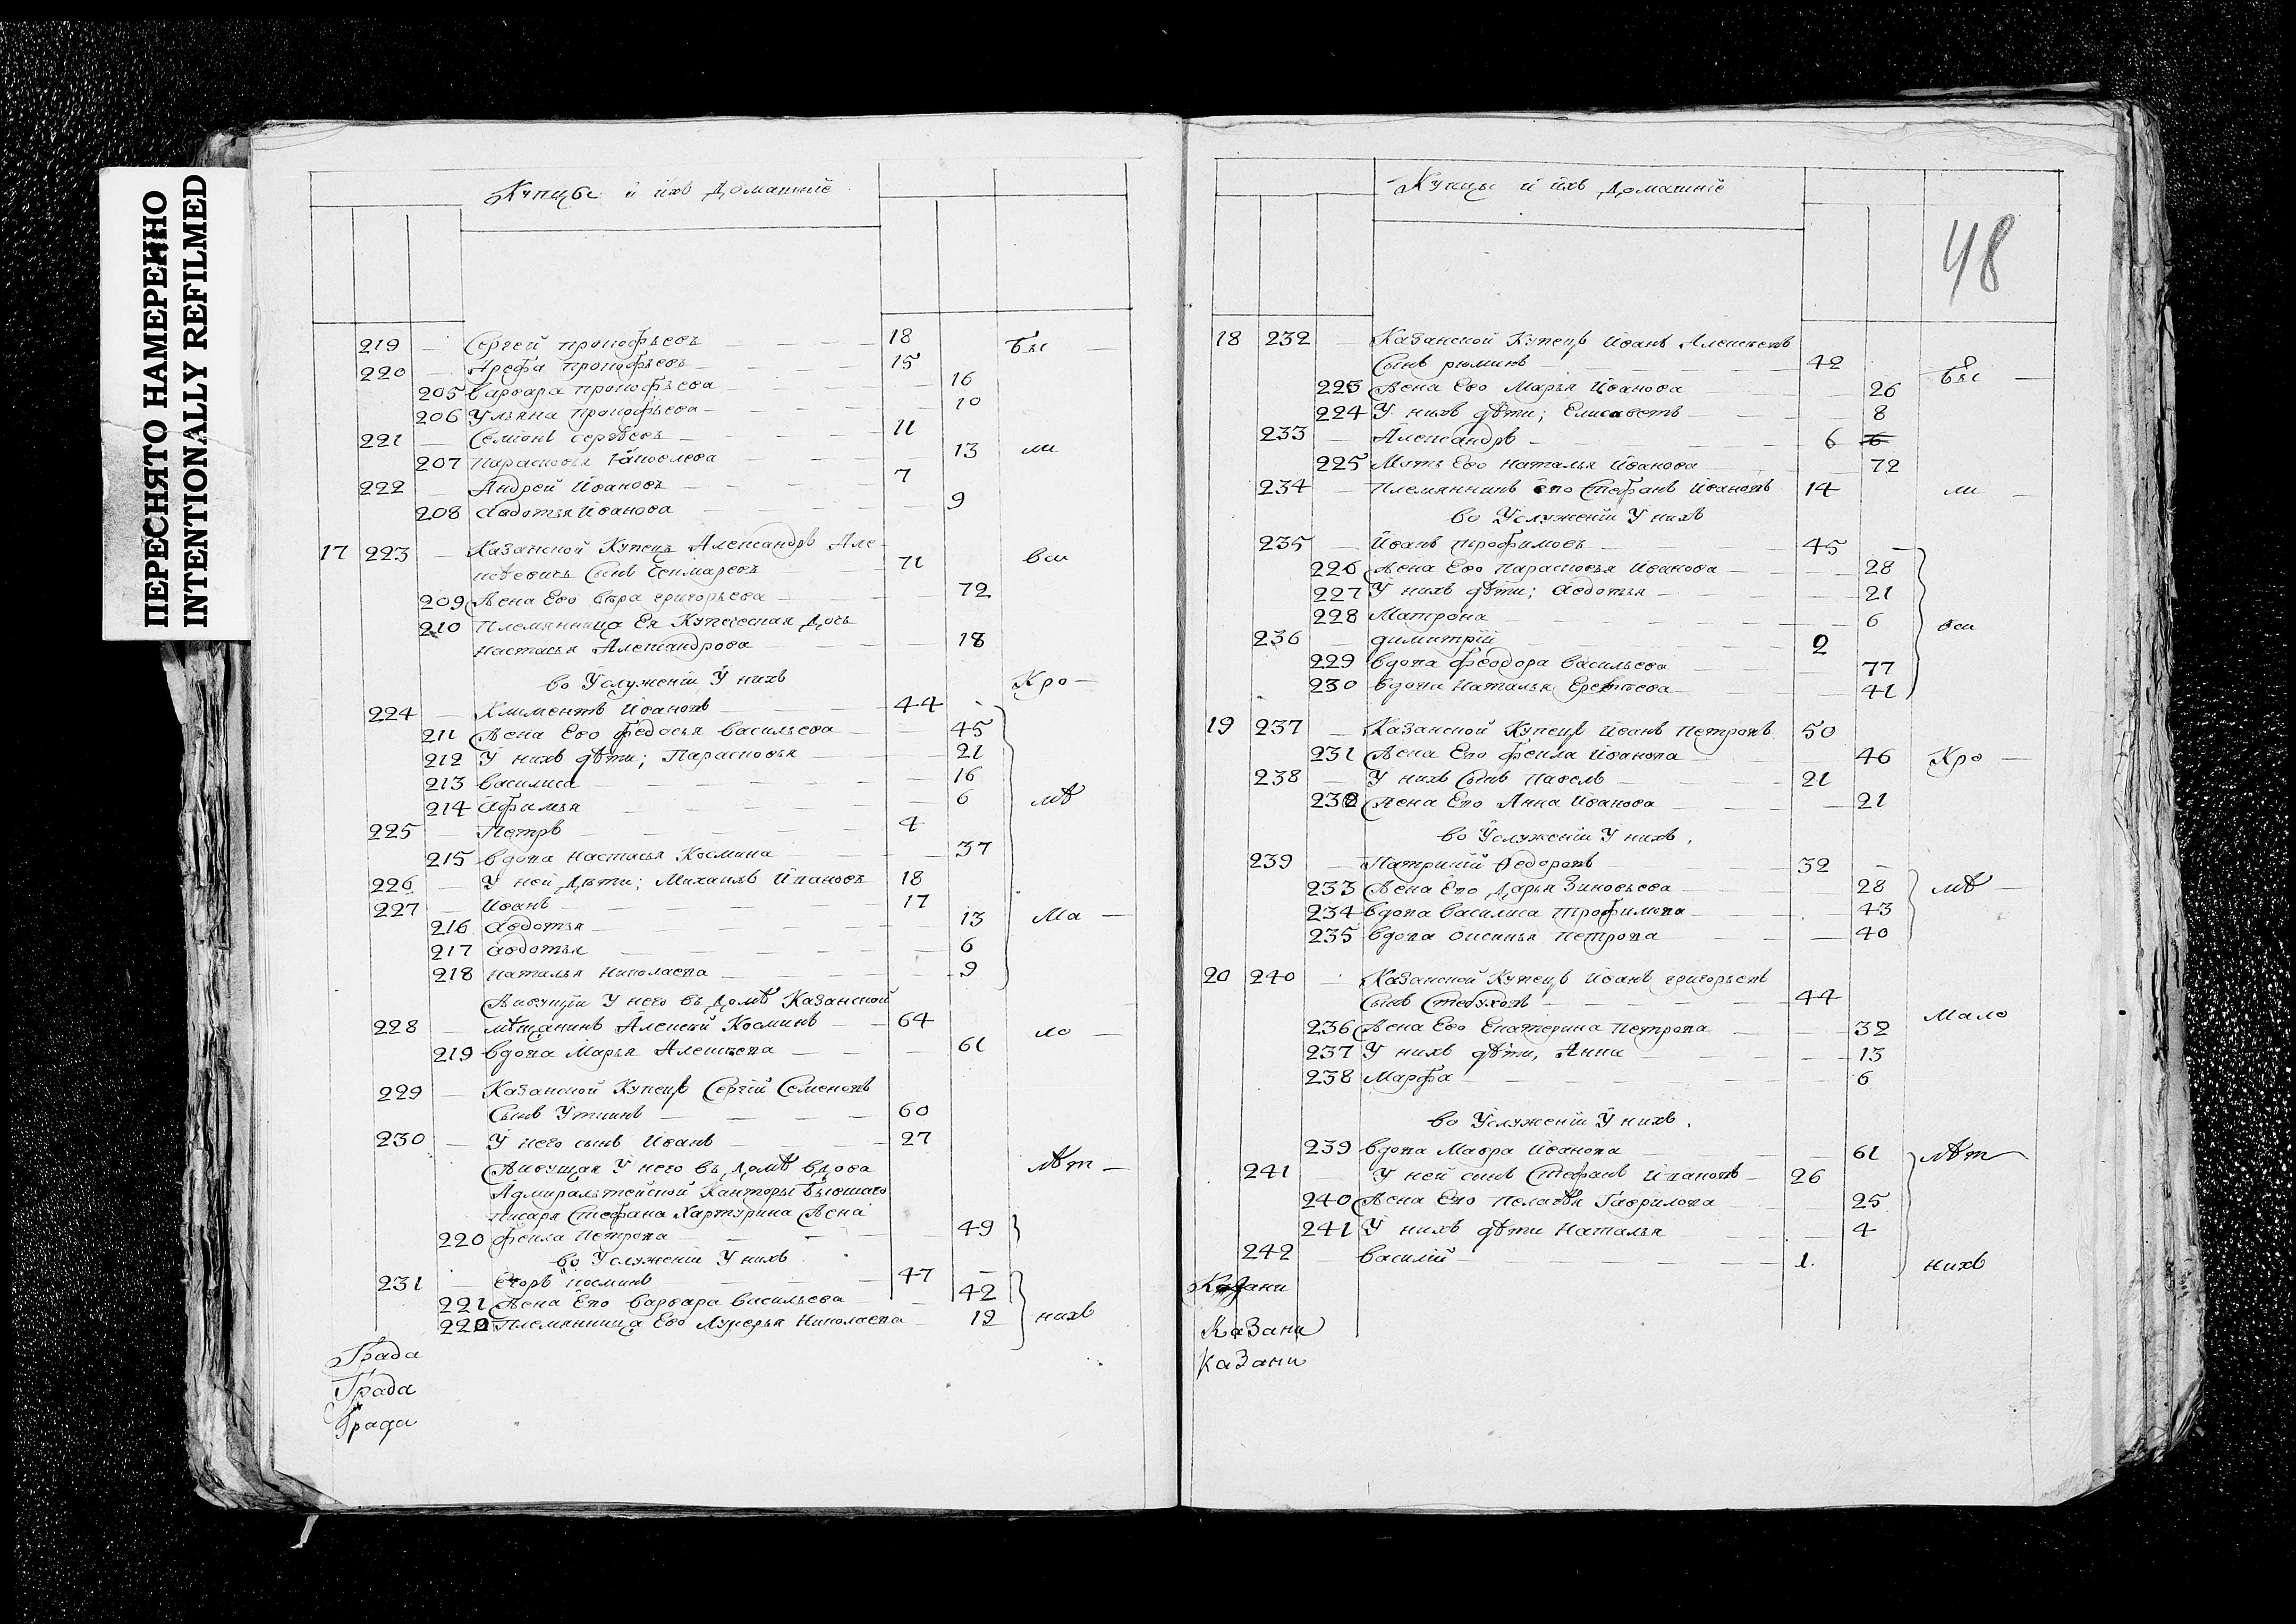 ПЕРЕСНЯТО НАМЕРЕННО
INTENTIONALLY REFILMED
Купцы и ихъ домашніе
219 — Сергей прокофьевъ — 18 Бы
220 — Арефа прокофьевъ — 15
205 варвара прокофьева — 16
206 Ульяна прокофьева — 10
221 — Семіонъ сергѣевъ — 11
207 парасковья — 13 ли
222 — Андрей Ивановъ — 7
208 авдотья Иванова — 9
17 223 — Казанской Купецъ Александръ Але-
ксѣевичь сынъ — 71 вси
209 Жена Его вѣра григорьева — 72
210 Племянница Ея Купеческая дочь
настасья Александрова — 18
во Услуженіи У нихъ Кро —
224 — Климентъ Ивановъ — 44
211 Жена Его федосья васильева — 45
212 У нихъ дѣти; Парасковья — 21
213 василиса — 16
214 Афимья — 6 мѣ
225 — Петръ — 4
215 вдова настасья Космина — 37
226 — У ней дѣти; Михаилъ Ивановъ 18
227 — Иванъ — 17
216 авдотья — 13 Ма —
217 авдотья — 6
218 наталья николаева — 9
Живущіи У него въ домѣ Казанской
228 — мѣщанинъ Алексѣй Косминъ — 64 ло —
219 вдова Марья Алексѣева — 61
229 — Казанской Купецъ Сергій Семеновъ
сынъ Уткинъ — 60
230 — У него сынъ Иванъ — 27
Живущая У него въ домѣ вдова лѣт —
Адмиралтейской Канторы бывшаго
писаря Стефана Хартурина Жена
220 фекла петрова — 49
во Услуженіи У нихъ
231 — Егоръ косминъ — 47
221 Жена Его варвара васильева — 42
222 Племянница Его Лукерья николаева — 12 нихъ
Града
Града
Града
Купцы и ихъ домашніе
48
18 232 — Казанской Купецъ Иванъ Алексѣевъ
сынъ рюминъ — 42 Бы —
223 Жена Его Марья Иванова — 26
224 У нихъ дѣти; Елисаветъ — 8
233 — Александръ — 6
225 Мать Его наталья Иванова — 72
234 — Племянникъ его Стефанъ Ивановъ 14 ли —
во Услуженіи У нихъ
235 — Иванъ трофимовъ — 45
226 Жена Его парасковья Иванова — 28
227 У нихъ дѣти; авдотья — 21
228 Матрона — 6 вси
236 — димитрій — 2
229 вдова феодора васильева — 77
230 вдова наталья — 41
19 237 — Казанской Купецъ Иванъ Петровъ 50
231 Жена Его фекла Иванова — 46 Кро —
238 — У нихъ сынъ павелъ — 21
232 Жена Его Анна Иванова — 21
во Услуженіи У нихъ,
239 — Патрикій Федоровъ — 32
233 Жена Его дарья Зиновьева — 28 мѣ —
234 вдова василиса трофимова — 43
235 вдова Оксинья петрова — 40
20 240 — Казанской Купецъ Иванъ григорьевъ
сынъ — 44
236 Жена Его Екатерина петрова — 32 Мало
237 У нихъ дѣти, Анна — 13
238 Марфа — 6
во Услуженіи У нихъ,
239 вдова Мавра Иванова — 61 лѣт
241 — У ней сынъ Стефанъ Ивановъ — 26
240 Жена Его пелагѣя Гаврилова — 25
241 У нихъ дѣти наталья — 4
242 — василій — 1. нихъ
Казани
Казани
Казани